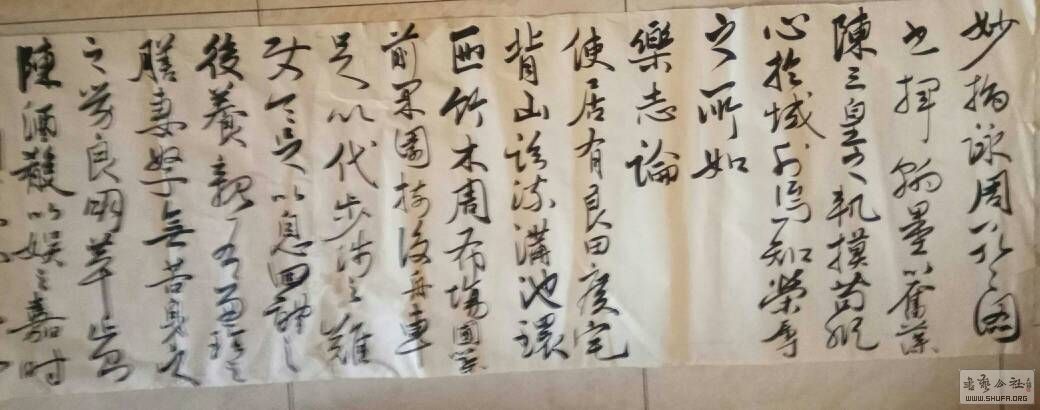 妙指詠周孔之圖
書揮翰墨以奮藻
陳三皇之軌摸苟縱
心於域外焉知榮辱
之所如
樂志論
使居有良田廣宅
背山臨流溝池環
匝竹木周布場圃築
前果園樹後舟車
足以代步涉之難
使令足以息四體之
役養親有兼珍之
膳妻孥無苦身
之勞良朋萃止則
陳酒餚以娛之嘉時
书艺公社
WWW.SHUFA.ORG